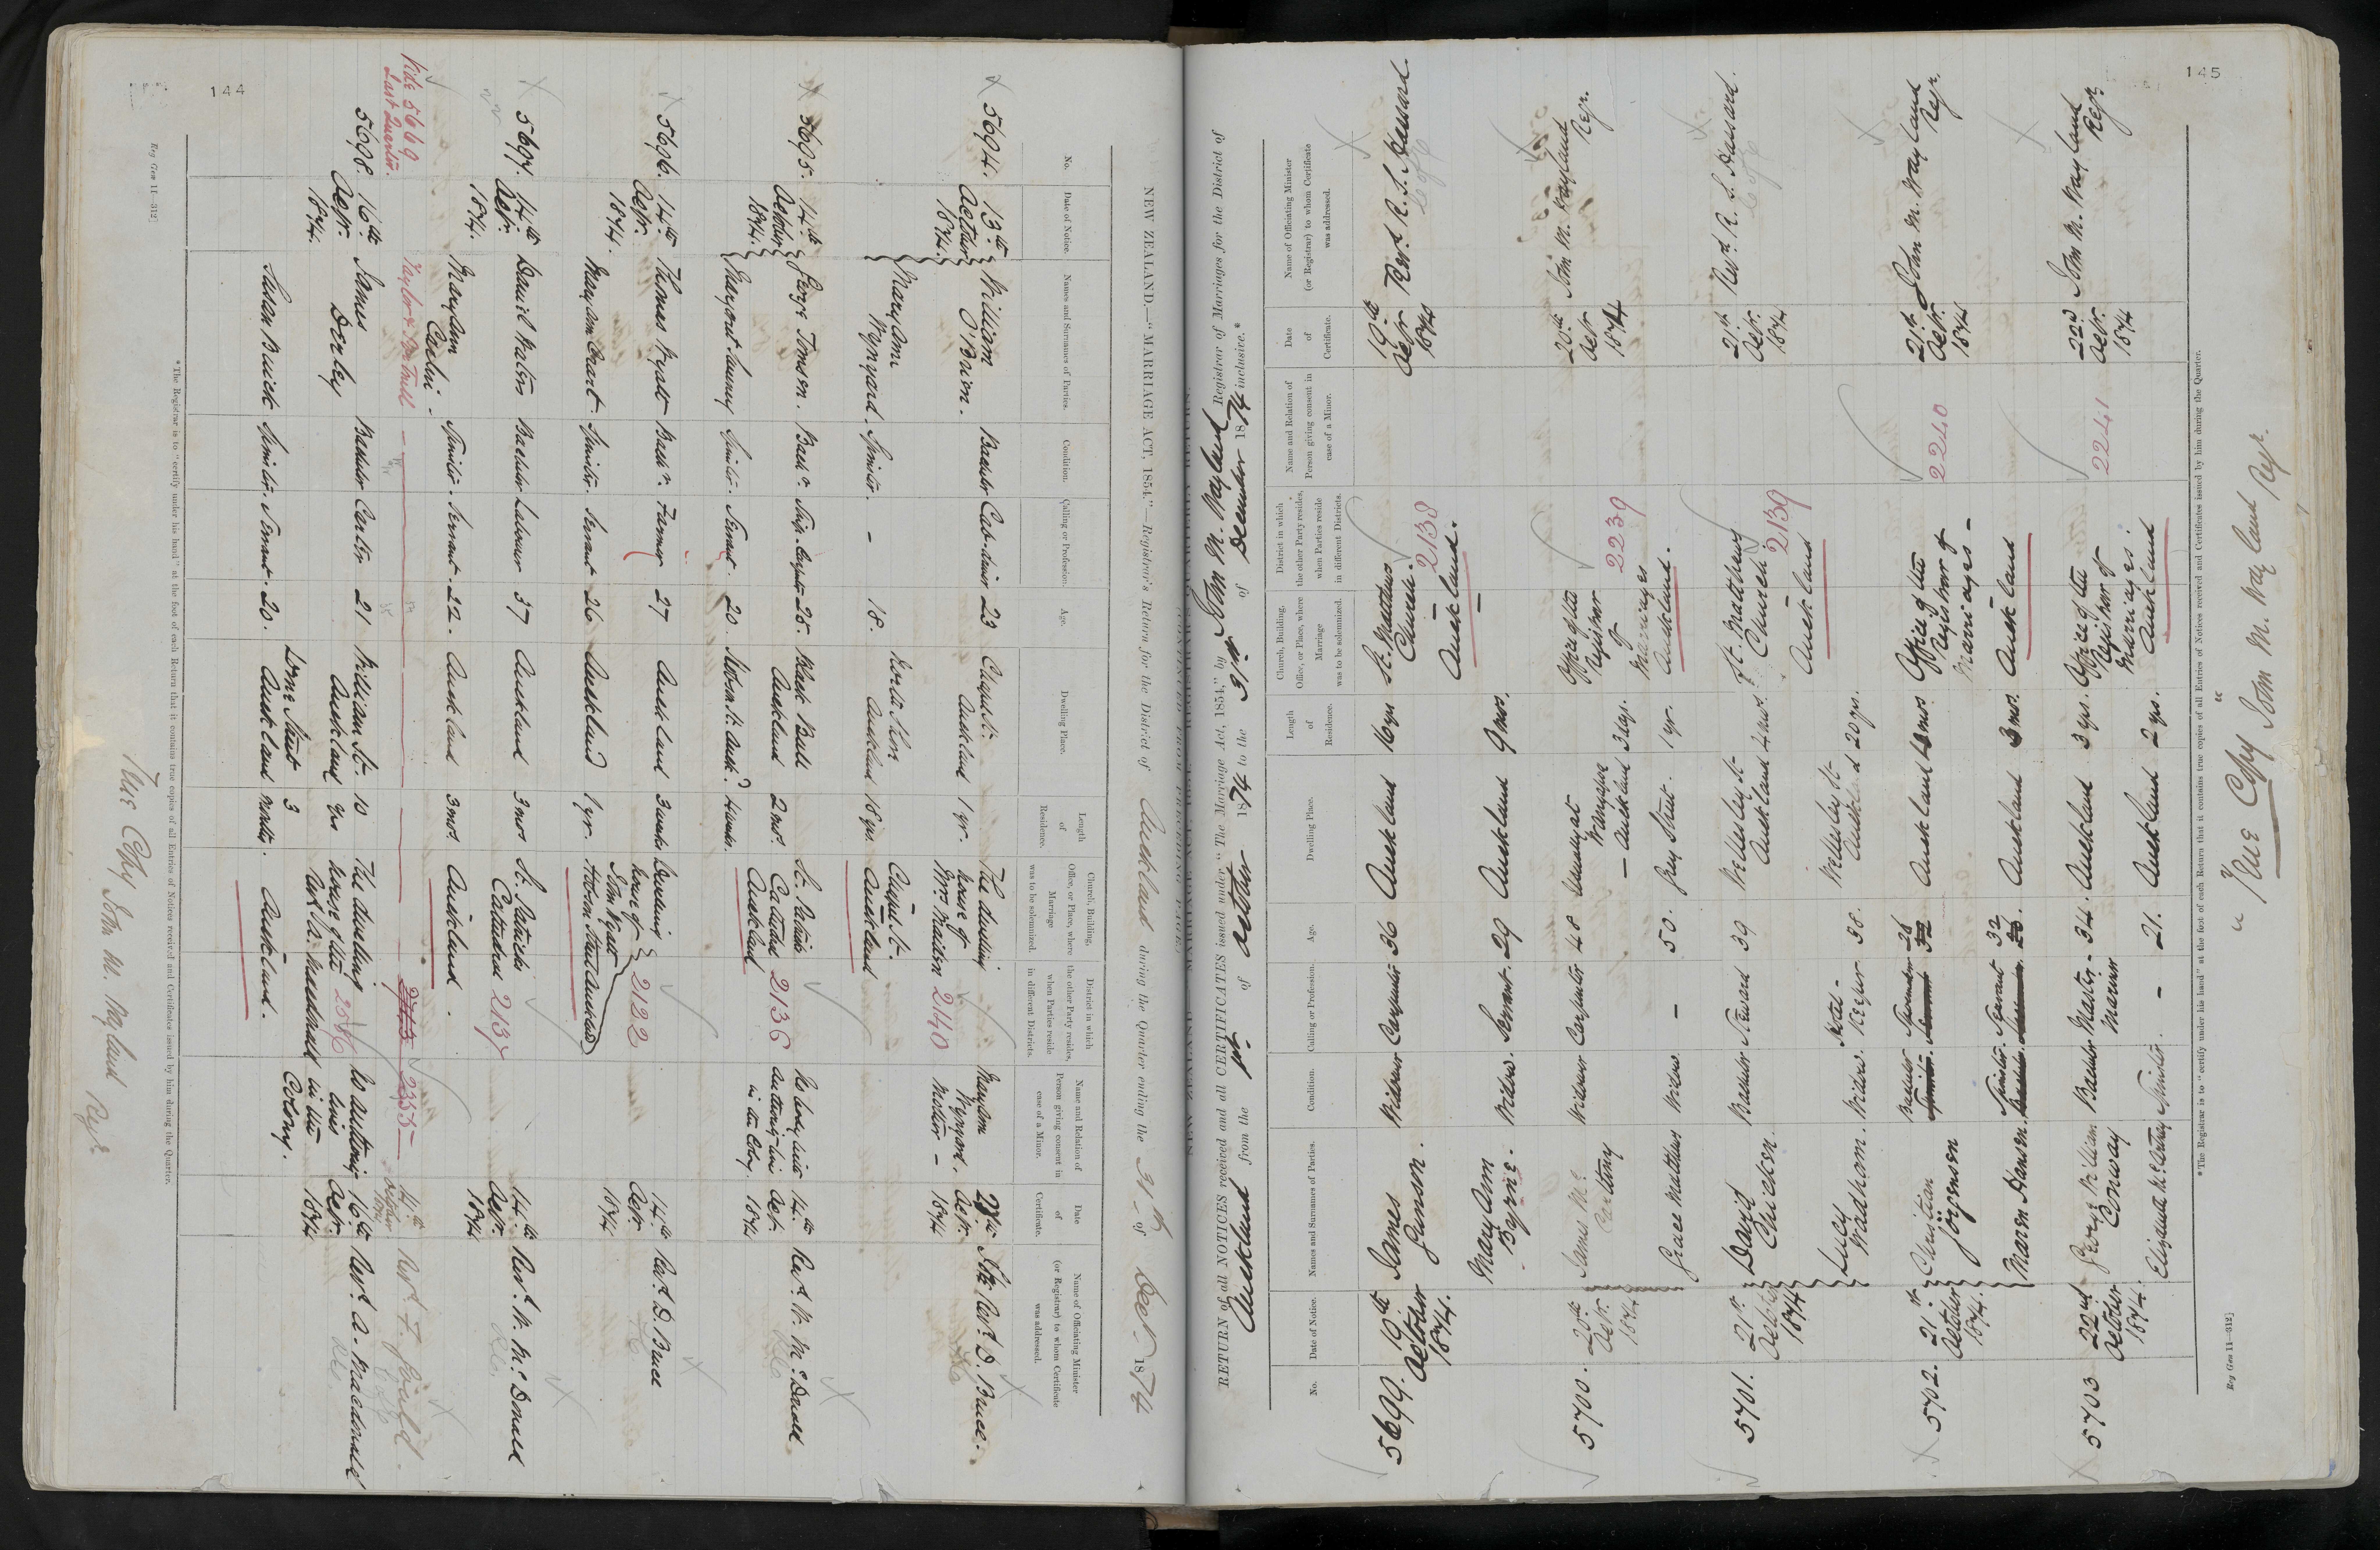 144
NEW ZEALAND.—"MARRIAGE ACT, 1854."—Registrar's Return for the District of Auckland during the Quarter ending the 31st of Decr. 1874
No.
Date of Notice.
Names and Surnames of Parties.
Condition.
Calling or Profession.
Age.
Dwelling Place.
Length of Residence.
Church, Building, Office, or Place, where Marriage was to be solemnized.
District in which the other Party resides, when Parties reside in different Districts.
Name and Relation of Person giving consent in case of a Minor.
Date of Certificate.
Name of Officiating Minister (or Registrar) to whom Certificate was addressed.
5694. 13th October 1874. William O'Brien. Bachelor Cab-driver 23 Chapel St. Auckland 1 yr. The dwelling house of Mrs 2140
Mary Ann Wynyard. Spinster. – 18. North Shore Auckland 16 yrs. Chapel St. Auckland Mary Ann Wynyard. Mother –
Octr. 1874 Revd. D. Bruce.
5695. 14th October 1874. George Tomson. Bachr. 25. Black Bull Auckland 2 mos. St. Patricks Cathedral Auckland 2136
Margaret Spinster. Servant. 20. Hobson St. Auckd. 4 weeks. in the Colony. 14th Octr. 1874 Revd. W. McDonald
5696. 14th Octr. 1874. Thomas Wyatt Bachr. Farmer 27 Auckland 3 weeks Dwelling house of John Wyatt Hobson Street Auckland 2122
Mary Ann Court. Spinster. Servant 26 Auckland 1 yr.
14th Octr. 1874 Revd. D. Bruce
5697. 14th Octr. 1874. Daniel Bachelor Labourer 37 Auckland 3 mos St. Patricks Cathedral 2137
Mary Ann Spinster. Servant. 22. Auckland 3 mos. Auckland.
14th Octr. 1874 Revd. W. McDonald
Vide 5669 Last Quarter. 2355 14th October Revd. F. Gould.
5698. 16th Octr. 1874. James Derley Bachelor Carter 21 William St. Auckland 10 yrs The dwelling house of the Revd. A. Macdonald
Susan Spinster. Servant. 20. Lorne Street Auckland 3 months. Auckland.
No authority in the Colony. 16th Octr. 1874 Revd. A. Macdonald
*The Registrar is to "certify under his hand" at the foot of each Return that it contains true copies of all Entries of Notices received and Certificates issued by him during the Quarter.
Reg Gen 11—312]
True Copy John M. Wayland Regr.
145
RETURN of all NOTICES received and all CERTIFICATES issued under "The Marriage Act, 1854," by John M. Wayland Registrar of Marriages for the District of
Auckland from the 1st of October 1874 to the 31st of December 1874 inclusive.*
No.
Date of Notice.
Names and Surnames of Parties.
Condition.
Calling or Profession.
Age.
Dwelling Place.
Length of Residence.
Church, Building, Office, or Place, where Marriage was to be solemnized.
District in which the other Party resides, when Parties reside in different Districts.
Name and Relation of Person giving consent in case of a Minor.
Date of Certificate.
Name of Officiating Minister (or Registrar) to whom Certificate was addressed.
5699. 19th October 1874. James Gunson. Widower Carpenter 36 Auckland 16 yrs St. Matthews Church. Auckland. 2138 19th Octr 1874 Revd. R. S. Hassard.
Mary Ann Byrne. Widow. Servant. 29 Auckland 9 mos.
5700. 20th Octr. 1874 James McCartney Widower Carpenter 48 Usually at Wangapoa – Auckland 3 days. Office of the Registrar of Marriages Auckland. 2239 20th Octr 1874 John M. Wayland Regr.
Grace Matthews Widow – 50. Grey Street. 1 yr.
5701. 21st October 1874 David Bachelor Steward 39 Wellesley St Auckland 4 mos. St. Matthews Church Auckland 2139 21st Octr. 1874 Revd. R. S. Hassard.
Lucy Wadham. Widow. Hotel-Keeper 38. Wellesley St Auckland 20 yrs.
5702. 21st October 1874. Christian Jörgensen Bachelor 26 Auckland mos Office of the Registrar of Marriages – Auckland 2240 21st Octr. 1874 John M. Wayland Regr.
Maren Hansen. Spinster. Servant 32 Auckland 3 mos.
5703 22nd October 1874. George William Conway Bachelor Master Mariner 34. Auckland 3 yrs. Office of the Registrar of Marriages: Auckland 2241 22d Octr. 1874 John M. Wayland Regr.
Elizabeth Spinster. – 21. Auckland 2 yrs.
*The Registrar is to "certify under his hand" at the foot of each Return that it contains true copies of all Entries of Notices received and Certificates issued by him during the Quarter.
Reg Gen 11—312]
True Copy John M. Wayland Regr.